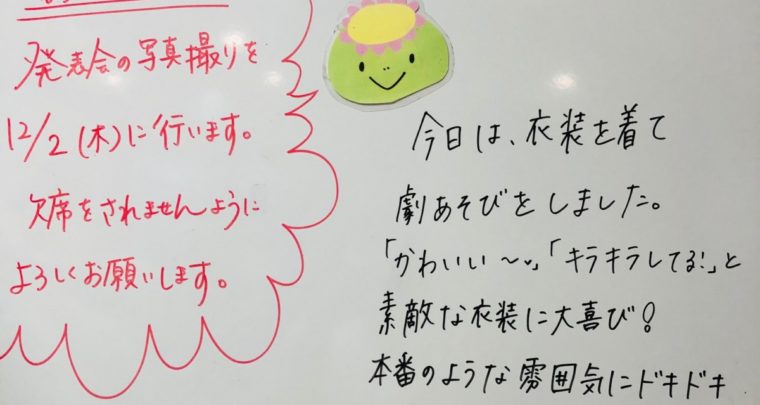 発表会の写真撮りを
12/2(木)に行います。
欠席をされませんように
よろしくお願いします。
今日は、衣装を着て
劇あそびをしました。
「かわいい〜♡」「キラキラしてる!」と
素敵な衣装に大喜び!
本番のような雰囲気にドキドキ